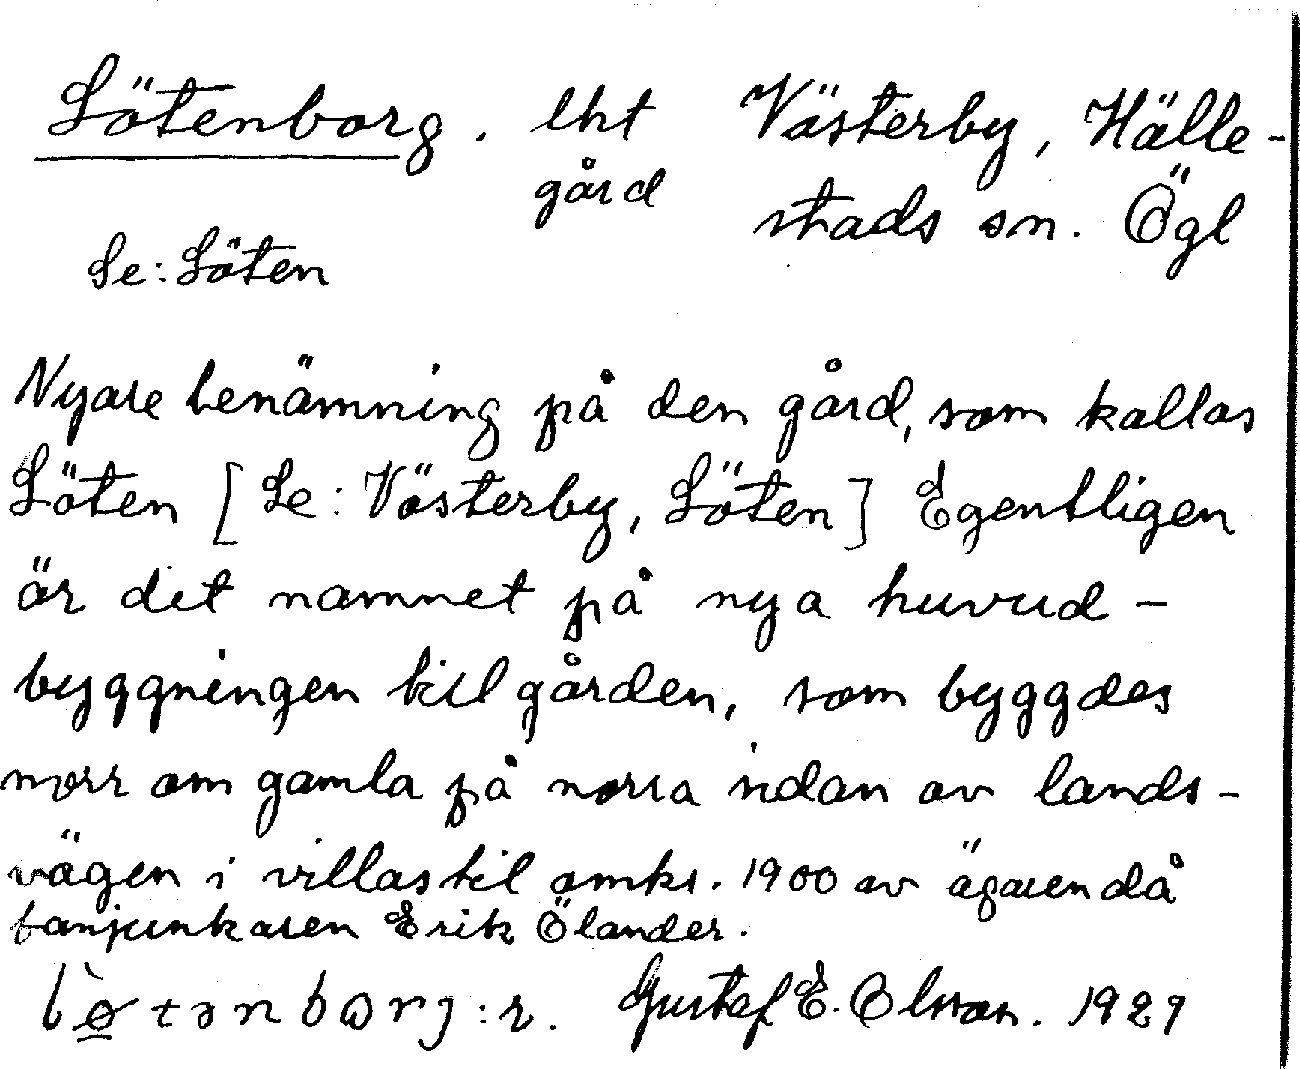 Lötenborg. lht Västerby, Hälle-
gård stads sn. Ögl
Se: Löten
Nyare benämning på den gård, som kallas
Löten [Se: Västerby, Löten] Egentligen
är det namnet på nya huvud-
byggningen till gården, som byggdes
norr om gamla på norra sidan av lands-
vägen i villastil omkr. 1900 av ägaren då
fanjunkaren Erik Ölander.
lø̀tənbɷrj:r. Gustaf E. Olsson. 1929